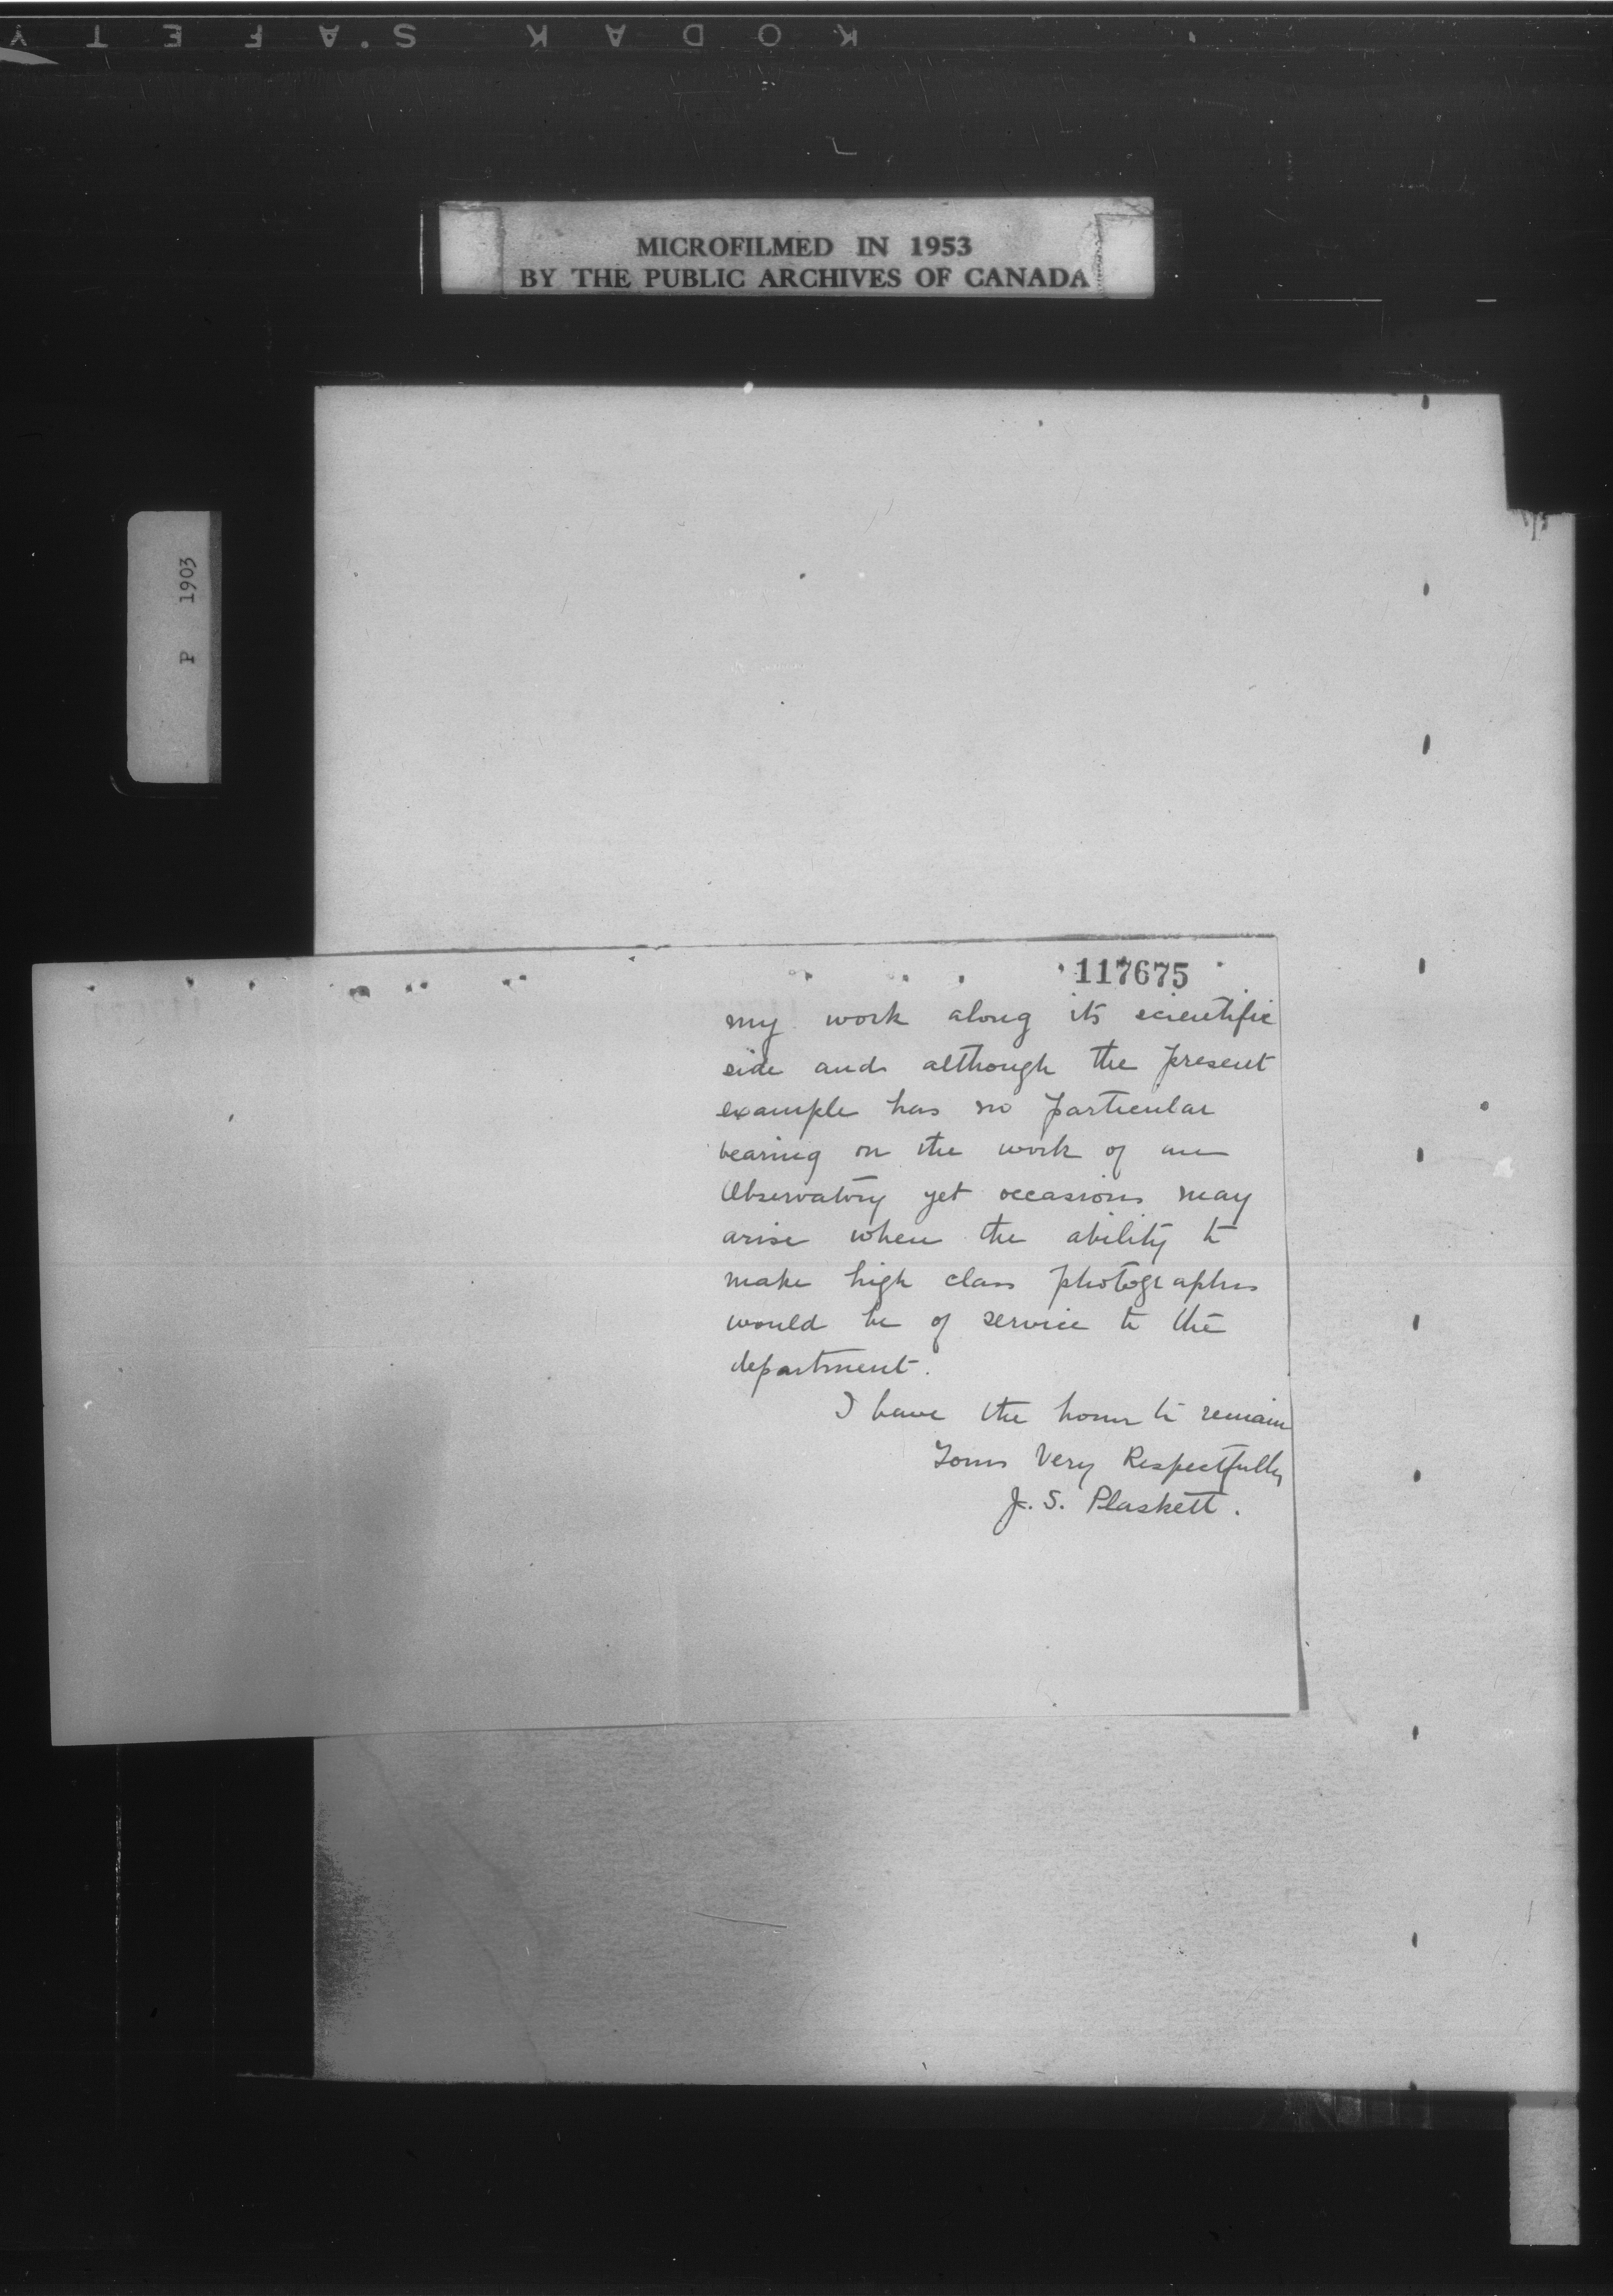 KODAK SAFETY
MICROFILMED IN 1953
BY THE PUBLIC ARCHIVES OF CANADA
P 1903
117675
my work along its scientific
side and although the present
example has no particular
bearing on the work of an
Observatory yet occasions may
arise when the ability to
make high class photographs
would be of service to the
department.
I have the honor to remain
Yours Very Respectfully
J. S. Plaskett.